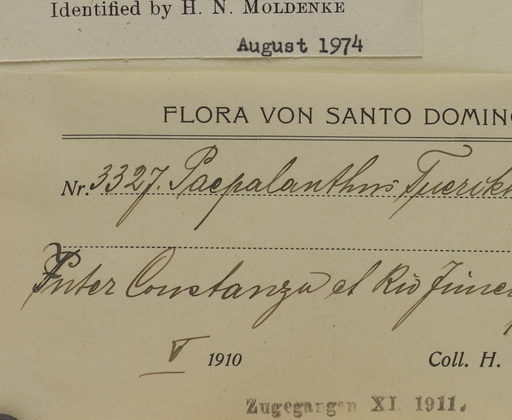 Identified by H. N. MOLDENKE
August 1974
FLORA VON SANTO DOMIN
Nr. 3327. Paepalanthus Tuerck
Inter Constanza et Rio Jimen
V 1910 Coll. H.
Zugegangen XI 1911.